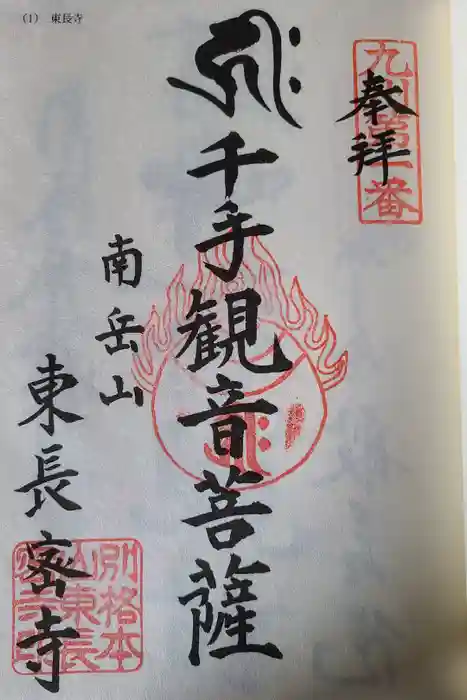 (1) 東長寺
九州第一番
奉拝
千手観音菩薩
南岳山
東長密寺
別格本
山東長